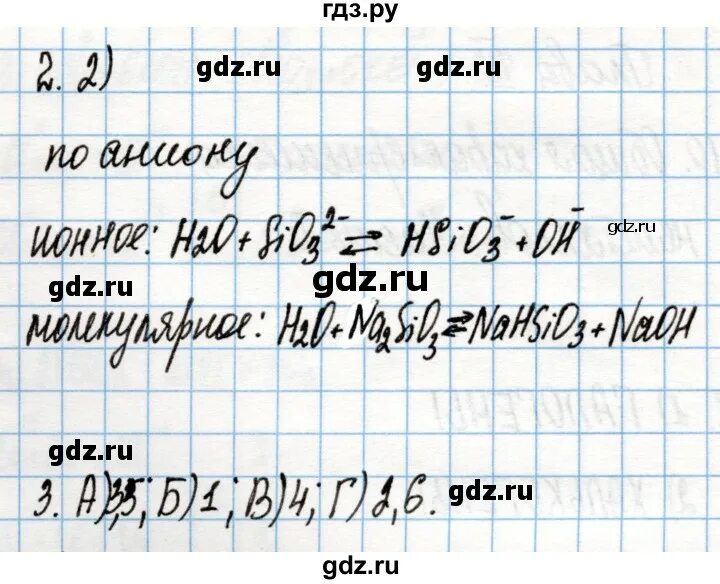 гдз.ру
2. 2)
gdz.ru gdz.ru
по аниону
ионное: H2O + SiO₃²⁻ ⇄ HSiO₃⁻ + OH⁻
gdz.ru
gdz.ru gdz.ru
молекулярное: H2O + Na₂SiO₃ ⇄ NaHSiO₃ + NaOH
gdz.ru
3. А) 3,5; Б) 1; В) 4; Г) 2,6.
gdz.ru
gdz.ru